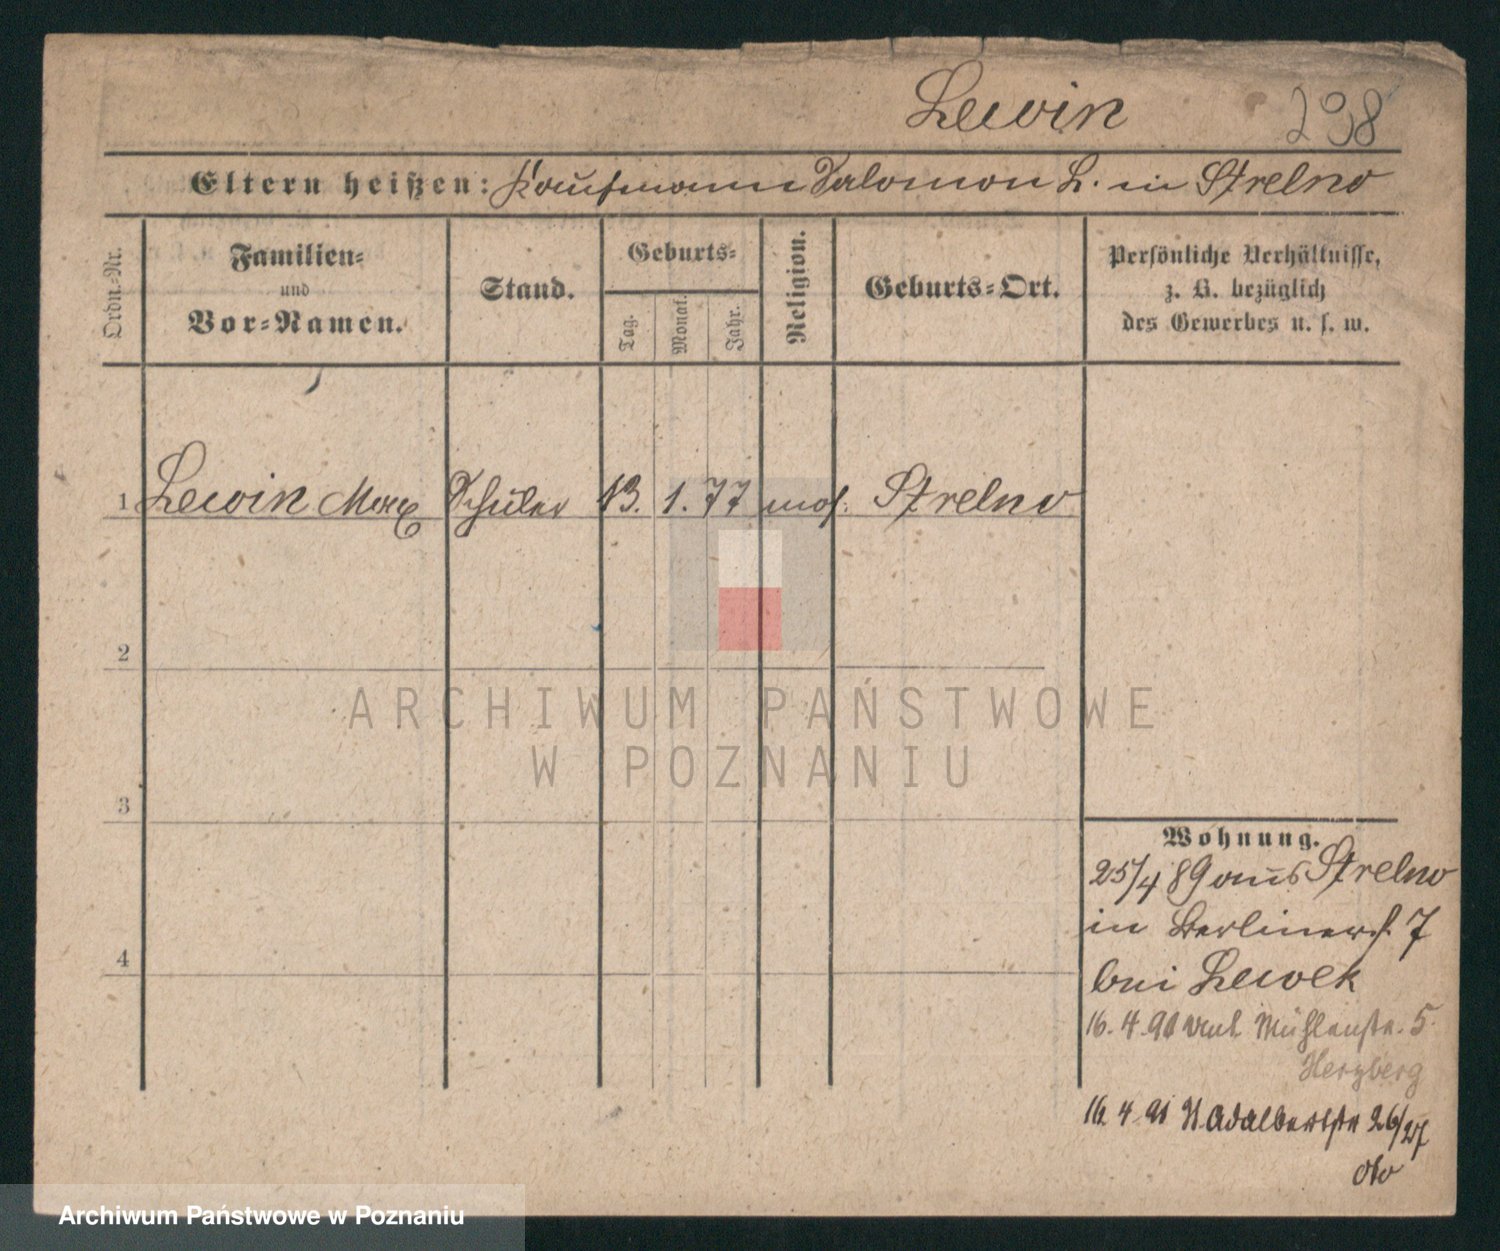 Lewin 238
Eltern heißen: Kaufmann Salomon L. in Strelno
Ordn.-Nr.
Familien-
und
Vor-Namen.
Stand.
Geburts-
Tag.
Monat.
Jahr.
Religion.
Geburts-Ort.
Persönliche Verhältnisse,
z. B. bezüglich
des Gewerbes u. s. w.
1 Lewin Max Schüler 13. 1. 77 mos. Strelno
2
3
4
Wohnung.
25/4 89 aus Strelno
in Berlinerst. 7
bei Lewek
16. 4. 90 Mühlenstr. 5
Herzberg
16. 4 91 Adalbertstr 26/27
ARCHIWUM PAŃSTWOWE
W POZNANIU
Archiwum Państwowe w Poznaniu